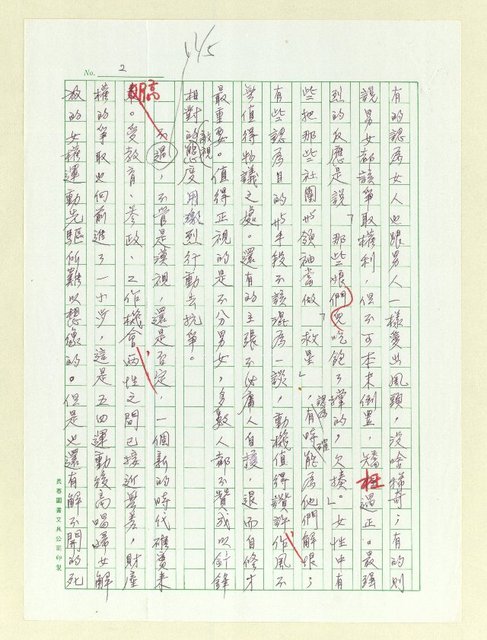 No. 2
有的認為女人也跟男人一樣愛出風頭，沒啥稀奇；有的則
說男女都該爭取權利，但不可本末倒置，矯枉過正。最強
烈的反應是說「那些娘們兒吃飽了撐的，欠揍。」女性中有
些把那些社團的領袖當做「救星」，有時能為他們解恨；
有些認為目的與手段不該混為一談，動機值得讚許，作風不
無值得物議之處。還有的主張不必庸人自擾，退而自修才
最重要。值得正視的是不分男女，多數人都不贊成以針鋒
相對的敵視態度用激烈行動去抗爭。
不過，不管是漠視，還是否定，一個新的時代確實來
到。受教育、參政、工作機會兩性之間已接近無差，財產
權的爭取也向前進了一大步，這是五四運動後高唱婦女解
放的女權運動先驅所難以想像的。但是也還有解不開的死
長春圖書文具公司印製